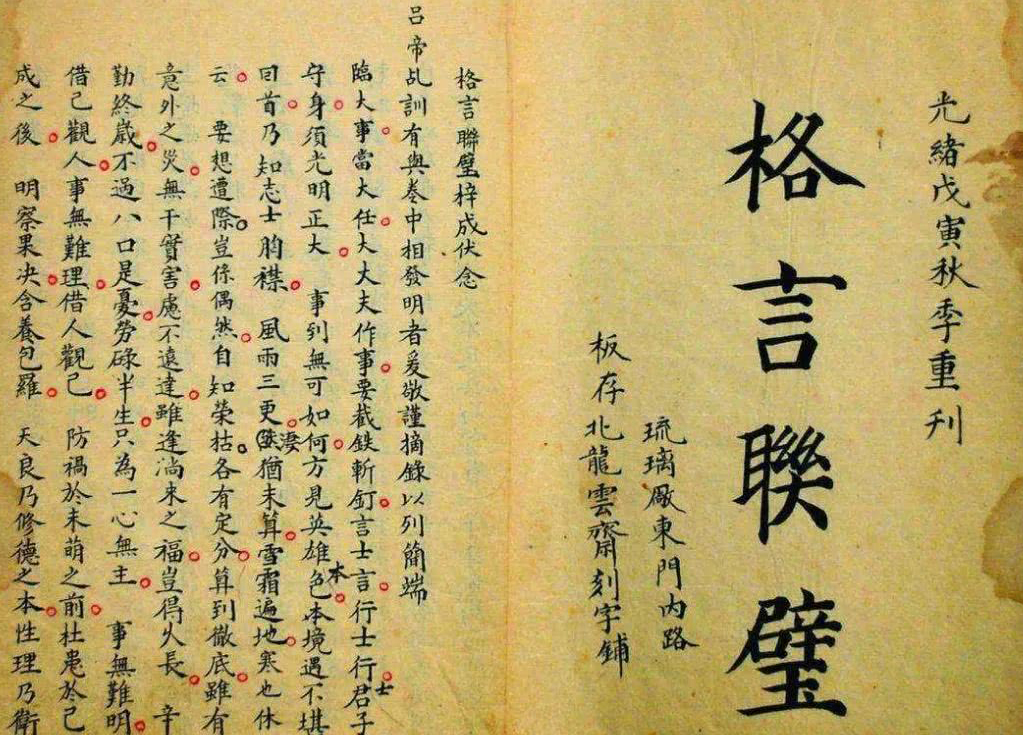 光緒戊寅秋季重刊
格言聯璧
琉璃厰東門內路
板存北龍雲齋刻字鋪
格言聯璧梓成伏念
呂帝乩訓有與卷中相發明者爰敬謹摘錄以列簡端
臨大事當大任大大夫作事要截鉄斬釘言士言行士行君子
士
守身須光明正大 事到無可如何方見英雄色本境遇不堪
本
回首乃知志士胸襟 風雨三更猶未算雪霜遍地寒也休
凄
云 要想遭際豈係偶然自知榮枯各有定分算到徹底雖有
意外之災無干實害慮不遠達雖逢淌来之福豈得久長 辛
勤終歲不過八口是憂勞碌半生只為一心無主 事無難明
借己觀人事無難理借人觀己 防禍於未萌之前杜患於己
成之後 明察果决含養包羅 天良乃修德之本性理乃衛